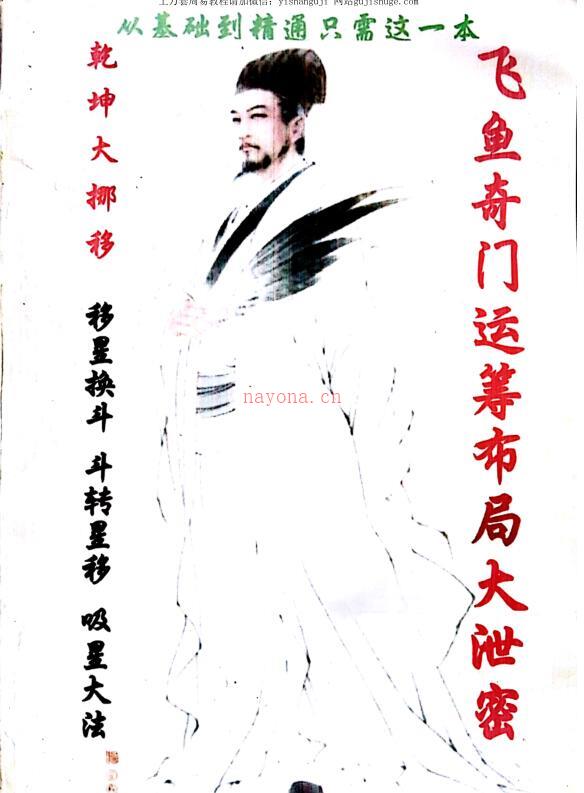 上万套周易教程请加微信：yishanguji 网站gujishuge.com
从基础到精通只需这一本
飞鱼奇门运筹布局大泄密
乾坤大挪移
移星换斗 斗转星移 吸星大法
nayona.cn